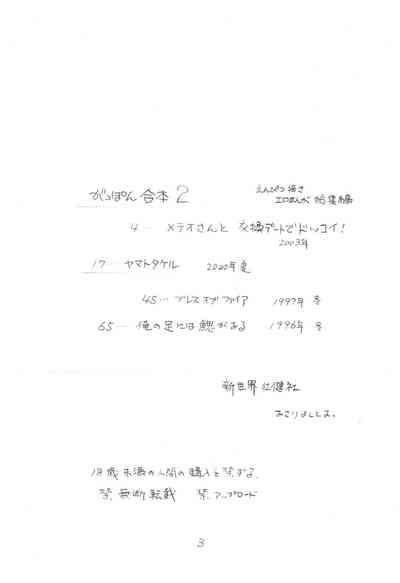 がっぽん 合本 2
えんぴつ描き
エロまんが 総集編
4 … メテオさんと 交換デートでドッコイ!
2003年
17 … ヤマトタケル 2020年 夏
45 … ブレス オブ ファイア 1997年 冬
65 … 俺の足には鰓がある 1996年 冬
新世界壮健社
あさりよしとお。
18歳未満の人間の購入を禁ずる。
禁 無断転載 禁 アップロード
3